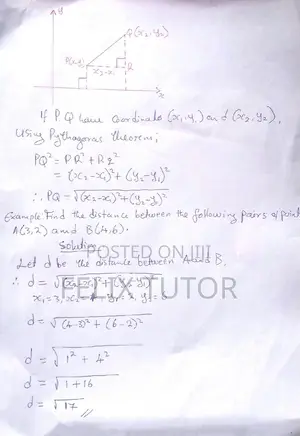 y
Q(x₂, y₂)
P(x₁, y₁)
x₂-x₁
R
x
If P Q have coordinate (x₁, y₁) and (x₂, y₂),
Using Pythagoras theorem;
PQ² = PR² + RQ²
= (x₂ - x₁)² + (y₂ - y₁)²
∴ PQ = √(x₂-x₁)²+(y₂-y₁)²
Example: Find the distance between the following pairs of point
A(3,2) and B(4,6).
Solution
POSTED ON JIJI
Let d be the distance between A and B.
∴ d = √(x₂-x₁)² + (y₂-y₁)²
FELIX TUTOR
x₁ = 3, x₂ = 4, y₁ = 2, y₂ = 6
d = √(4-3)² + (6-2)²
d = √1² + 4²
d = √1 + 16
d = √17